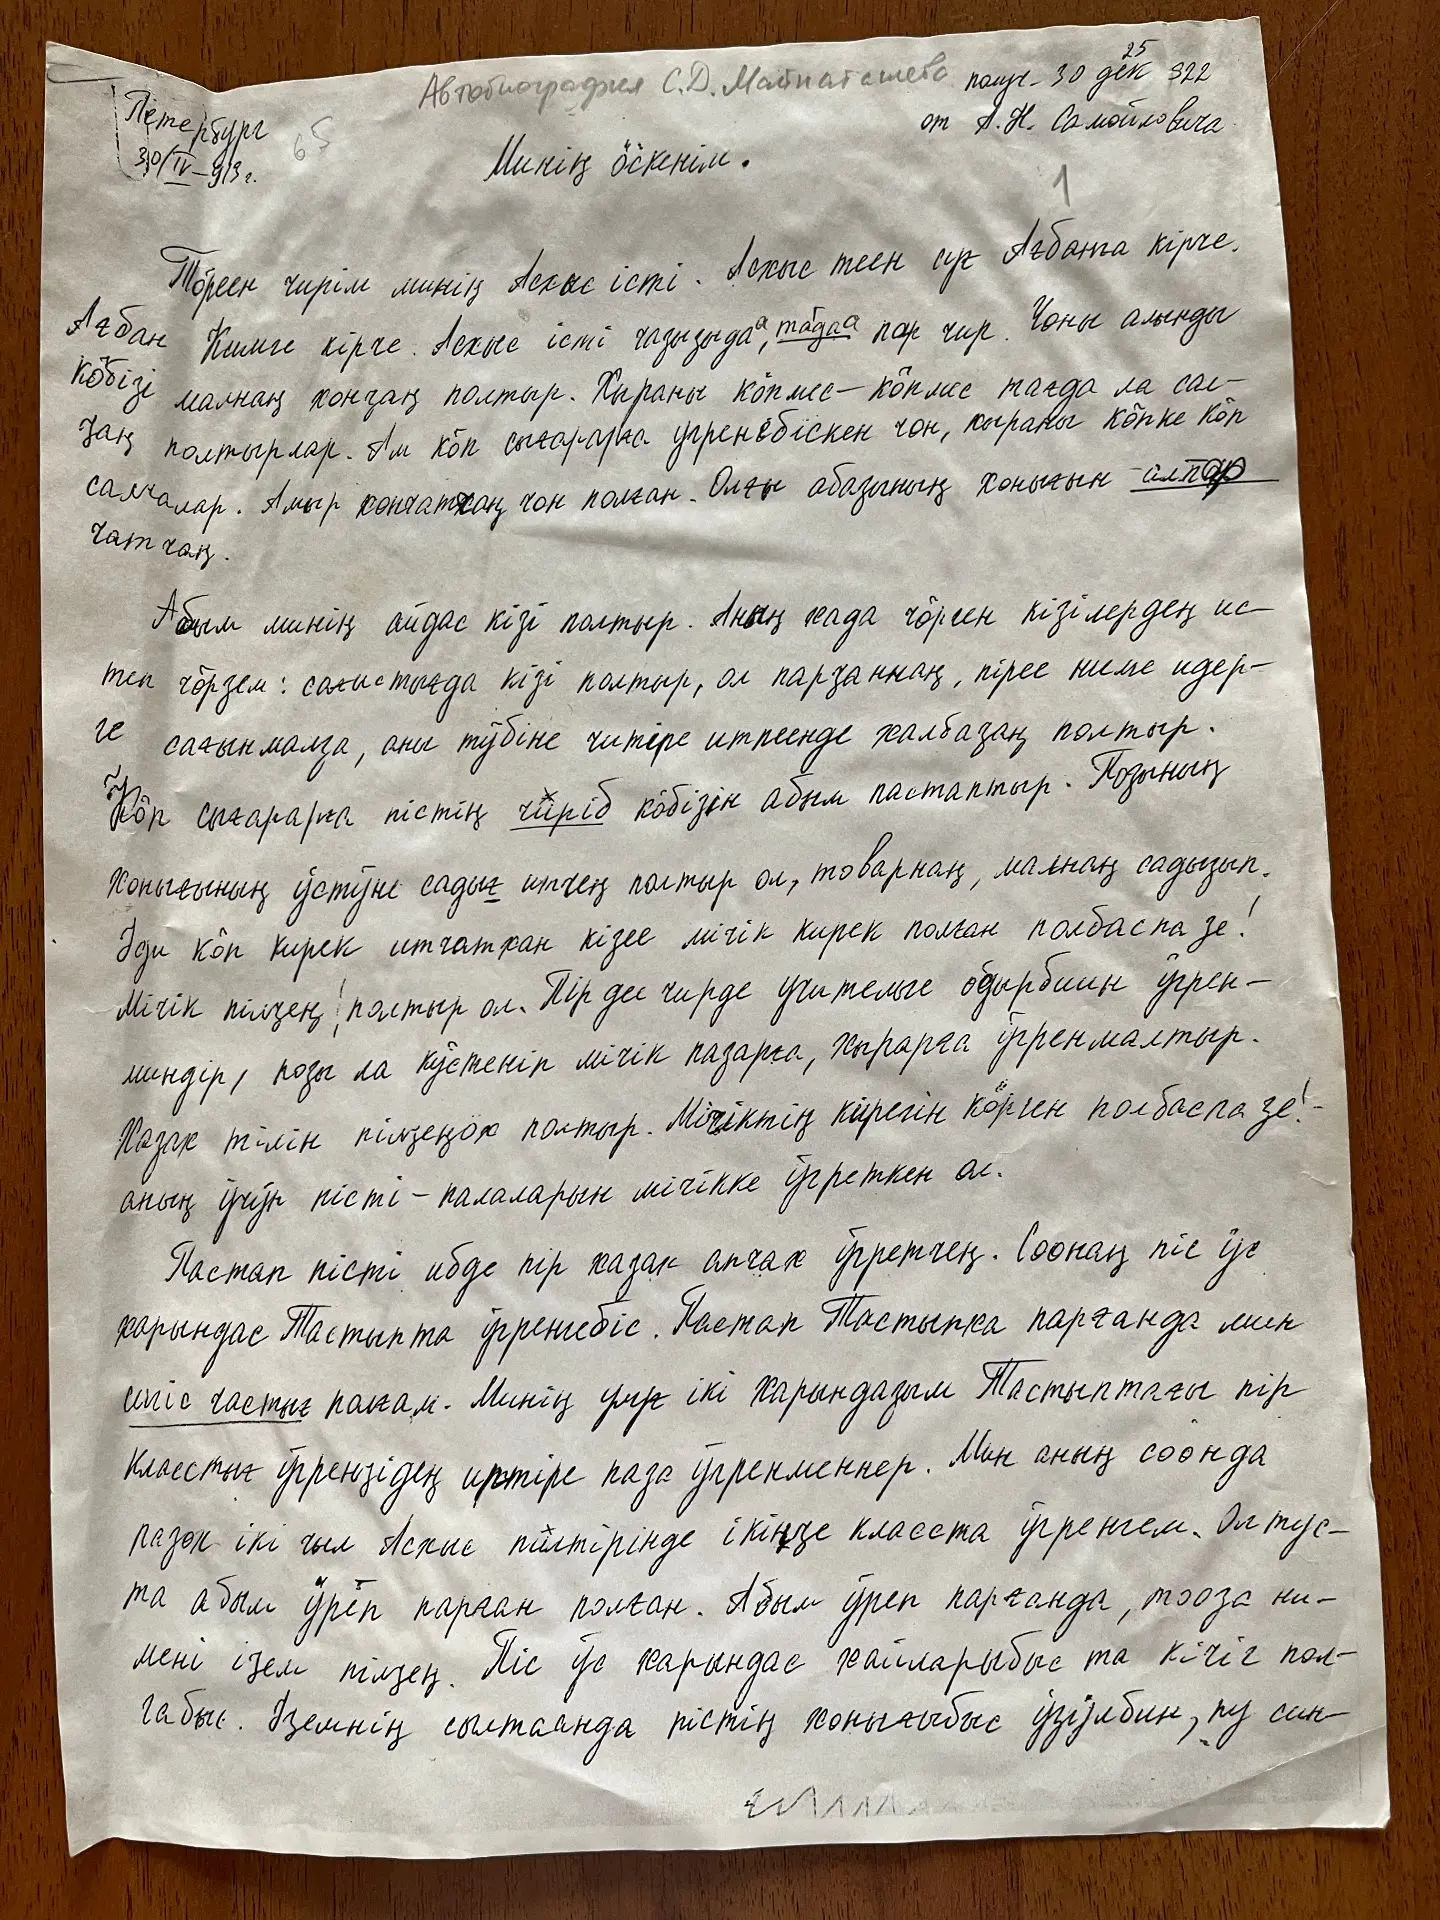 Автобиография С.Д. Майнагашева
получ. 30 дек 25 922
от А.Н. Самойловича
Петербург
30/IV–913 г.
65
Минің öскенім.
1
Тöреен чирім минің Асхыс істі. Асхыс теен суғ Ағбанға кірче.
Ағбан Кимге кірче. Асхыс істі чазызыдаа, тағдаа пар чир. Чоны алынды
кöбізі малнаң хонҷаң полтыр. Хыраны кöпмес–кöпмес тағда ла сал-
ҷаң полтырлар. Ам кöп сығарарға ӱгренêбіскен чон, хыраны кöпке кöп
салчалар. Амыр хончатхаң чон полған. Олғы абазының хонығын алпар
чатчаң.
Абым минің айдас кізі полтыр. Аның хада чöрген кізілердең ис-
теп чöрзем: сағыстығда кізі полтыр, ол парҷаннаң, пірее ниме идер-
ге сағынмалза, аны тӱбіне читіре итпеенде халбаҷаң полтыр.
Кöп сығарарға пістің чиріб кöбізін абым пастаптыр. Позының
хонығының ӱстӱне садығ итчең полтыр ол, товарнаң, малнаң садызып.
Іди кöп кирек итчатхан кізее пічік кирек полған полбаспа зе!
Пічік пілҷең полтыр ол. Пір дее чирде учительге одырбиин ӱгрен-
миндір, позы ла кӱстеніп пічік пазарға, хырарға ӱгренмалтыр.
Хазах тілін пілҷеңöк полтыр. Пічіктің кирегін кöрген полбаспа зе!–
аның ӱчӱн пісті–палаларын пічікке ӱгреткен ол.
Пастап пісті ибде пір хазах апчах ӱгретчең. Соонаң піс ӱс
харындас Тастыпта ӱгренгебіс. Пастап Тастыпха парғанда мин
сигіс частығ полғам. Минің улуғ ікі харындазым Тастыптағы пір
класстығ ӱгрензідең иртіре паза ӱгренменнер. Мин аның соонда
пазох ікі чыл Асхыс пилтірінде ікінҷе класста ӱгренгем. Ол тус-
та абым ӱреп парған полған. Абым ӱреп парғанда, тооза ни-
мені іҷем пілҷең. Піс ӱс харындас хайларыбыс та кічіг пол-
габыс. Іҷемнің сылтаанда пістің хонығыбыс ӱзӱлбин, пу син-